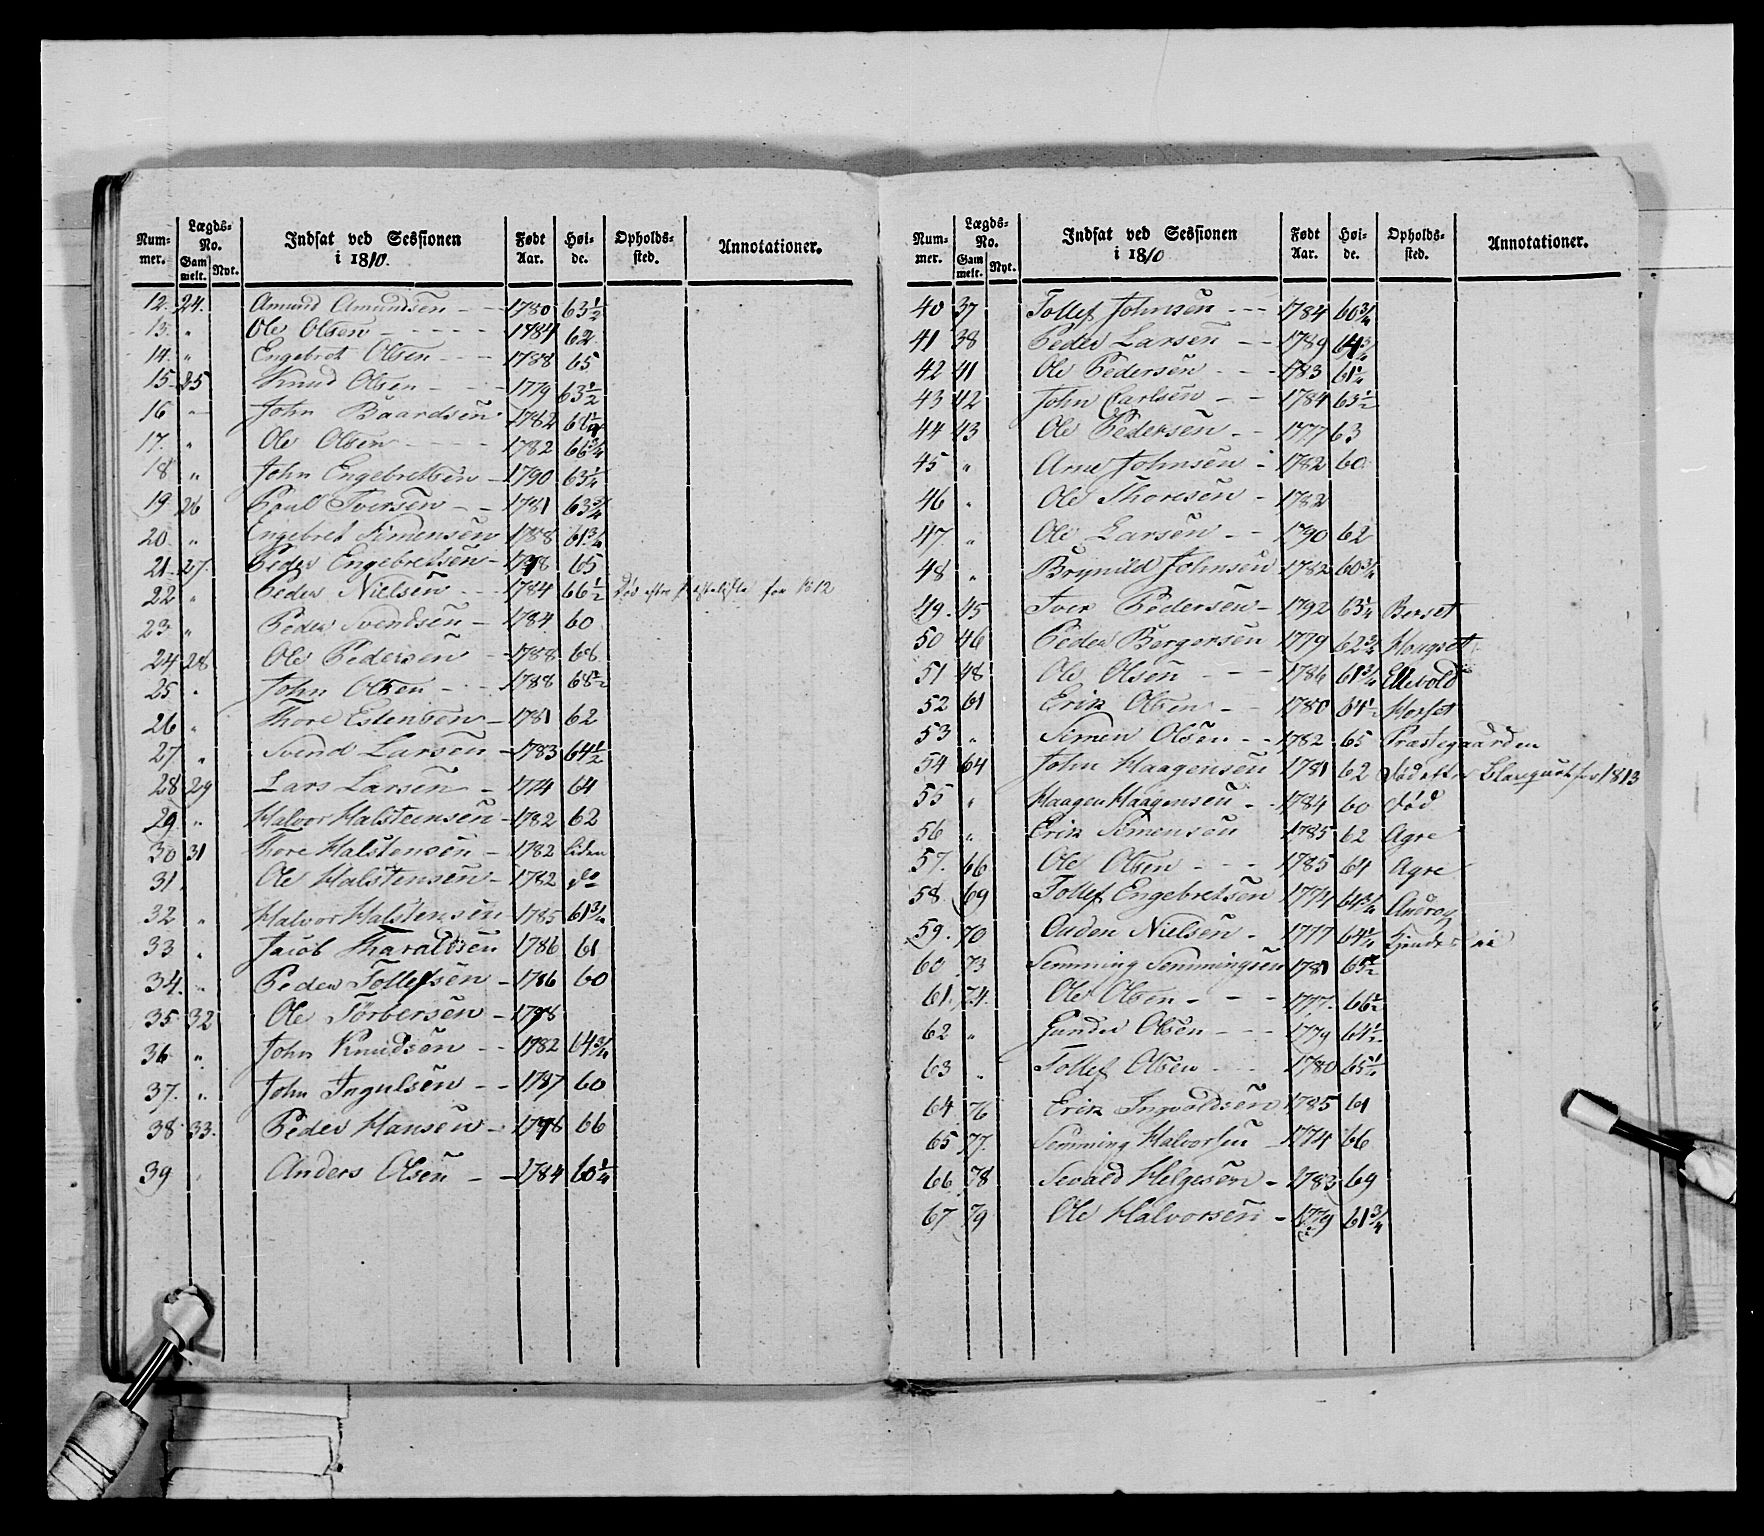 Num-mer. Lægds-No. Gam melt. Nyt. Indsat ved Sessionen i 1810. Født Aar. Høi-de. Opholds-sted. Annotationer.
12. 24. Amund Amundsen - - 1780 63½
13. „ Ole Olsen - - - - - 1784 62
14. „ Engebret Olsen - - - 1788 65
15. 25 Knud Olsen - - - 1779 63½
16 - John Baardsen 1762
17. „ Ole Olsen - - - - 1782 66¾
18 „ John Engebretsen - 1790 63¼
19. 26 Poul Iversen - - 1781 63¾
20. „ Engebret Simensen 1788 61¾
21. 27. Peder Engebretsen - 65
22 „ Peder Nielsen - - - 1784 66½ Død efter for 1812
23. „ Peder Svendsen - 1784. 60
24 28 Ole Pedersen - 1788 68
25 „ John Olsen - - - 1788 68½
26 „ Thore Estensen - 1781 62
27 „ Svend Larsen - 1783 64½
28 29 Lars Larsen - 1774 64
29 „ Halvor Halsteensen - 1782 62
30 31 Thore Halstensen - 1782 liden
31 Ole Halstensen - 1782 do
32 „ Halvor Halstensen 1785 61¾
33 „ Jacob Tharaldsen 1786 61
34. „ Peder Tollefsen - 1786 60
35 32 Ole Torbersen -
36 „ John Knudsen - - 1782 64¾
37. „ John Ingulsen - - 1787 60
38 33. Peder Hansen - 66
39 „ Anders Olsen - - 1784 60¼
Num-mer. Lægds-No. Gam melt. Nyt. Indsat ved Sessionen i 1810 Født Aar. Høi-de. Opholds-sted. Annotationer.
40 37 Tollef Johnsen - - - 1784 60¾
41 38 Peder Larsen - - 1789 64¾
42 41 Ole Pedersen - - - 1783 61¼
43 42 John Carlsen - - 1784 63½
44 43 Ole Pedersen - - 1777 63
45 „ Arne Johnsen - 1782 60
46 „ Ole Thoresen - 1782
47 „ Ole Larsen - - 1790 62
48 „ Brynild Johnsen 1782 60¾
49. 45 Iver Pedersen - 1792 63¼ Berset
50 46 Peder Bergersen 1779 62¾ Haugset
51 48 Ole Olsen - - - 1786 61¾ Ellevold
52 61 Erik Olsen - - 1780 64½ Morset
53 „ Simen Olsen - - 1782 65 Præstegaarden
54 64 John Haagensen 1781 62 død efter for 1813
55 „ Haagen Haagensen - - 1784 60 død
56 „ Erik Simensen 1785 62 Agre
57. 66 Ole Olsen - - - 1785 64 Agre
58 69 Tollef Engebretsen 1774 64¾
59. 70 Auden Nielsen - 1777 64¼
60 73 Semming Semmingsen 1781 65½
61. 74. Ole Olsen - - - 1777. 66½
62 „ Gunder Olsen - - - 1779 64½
63 „ Tollef Olsen - - - 1780 65¼
64 76 Erik Ingvaldsen 1785 61
65 77. Semming Halvorsen - 1774 66
66 78 Sevald Helgesen - 1783 69
67 79 Ole Halvorsen - 1779 61¾